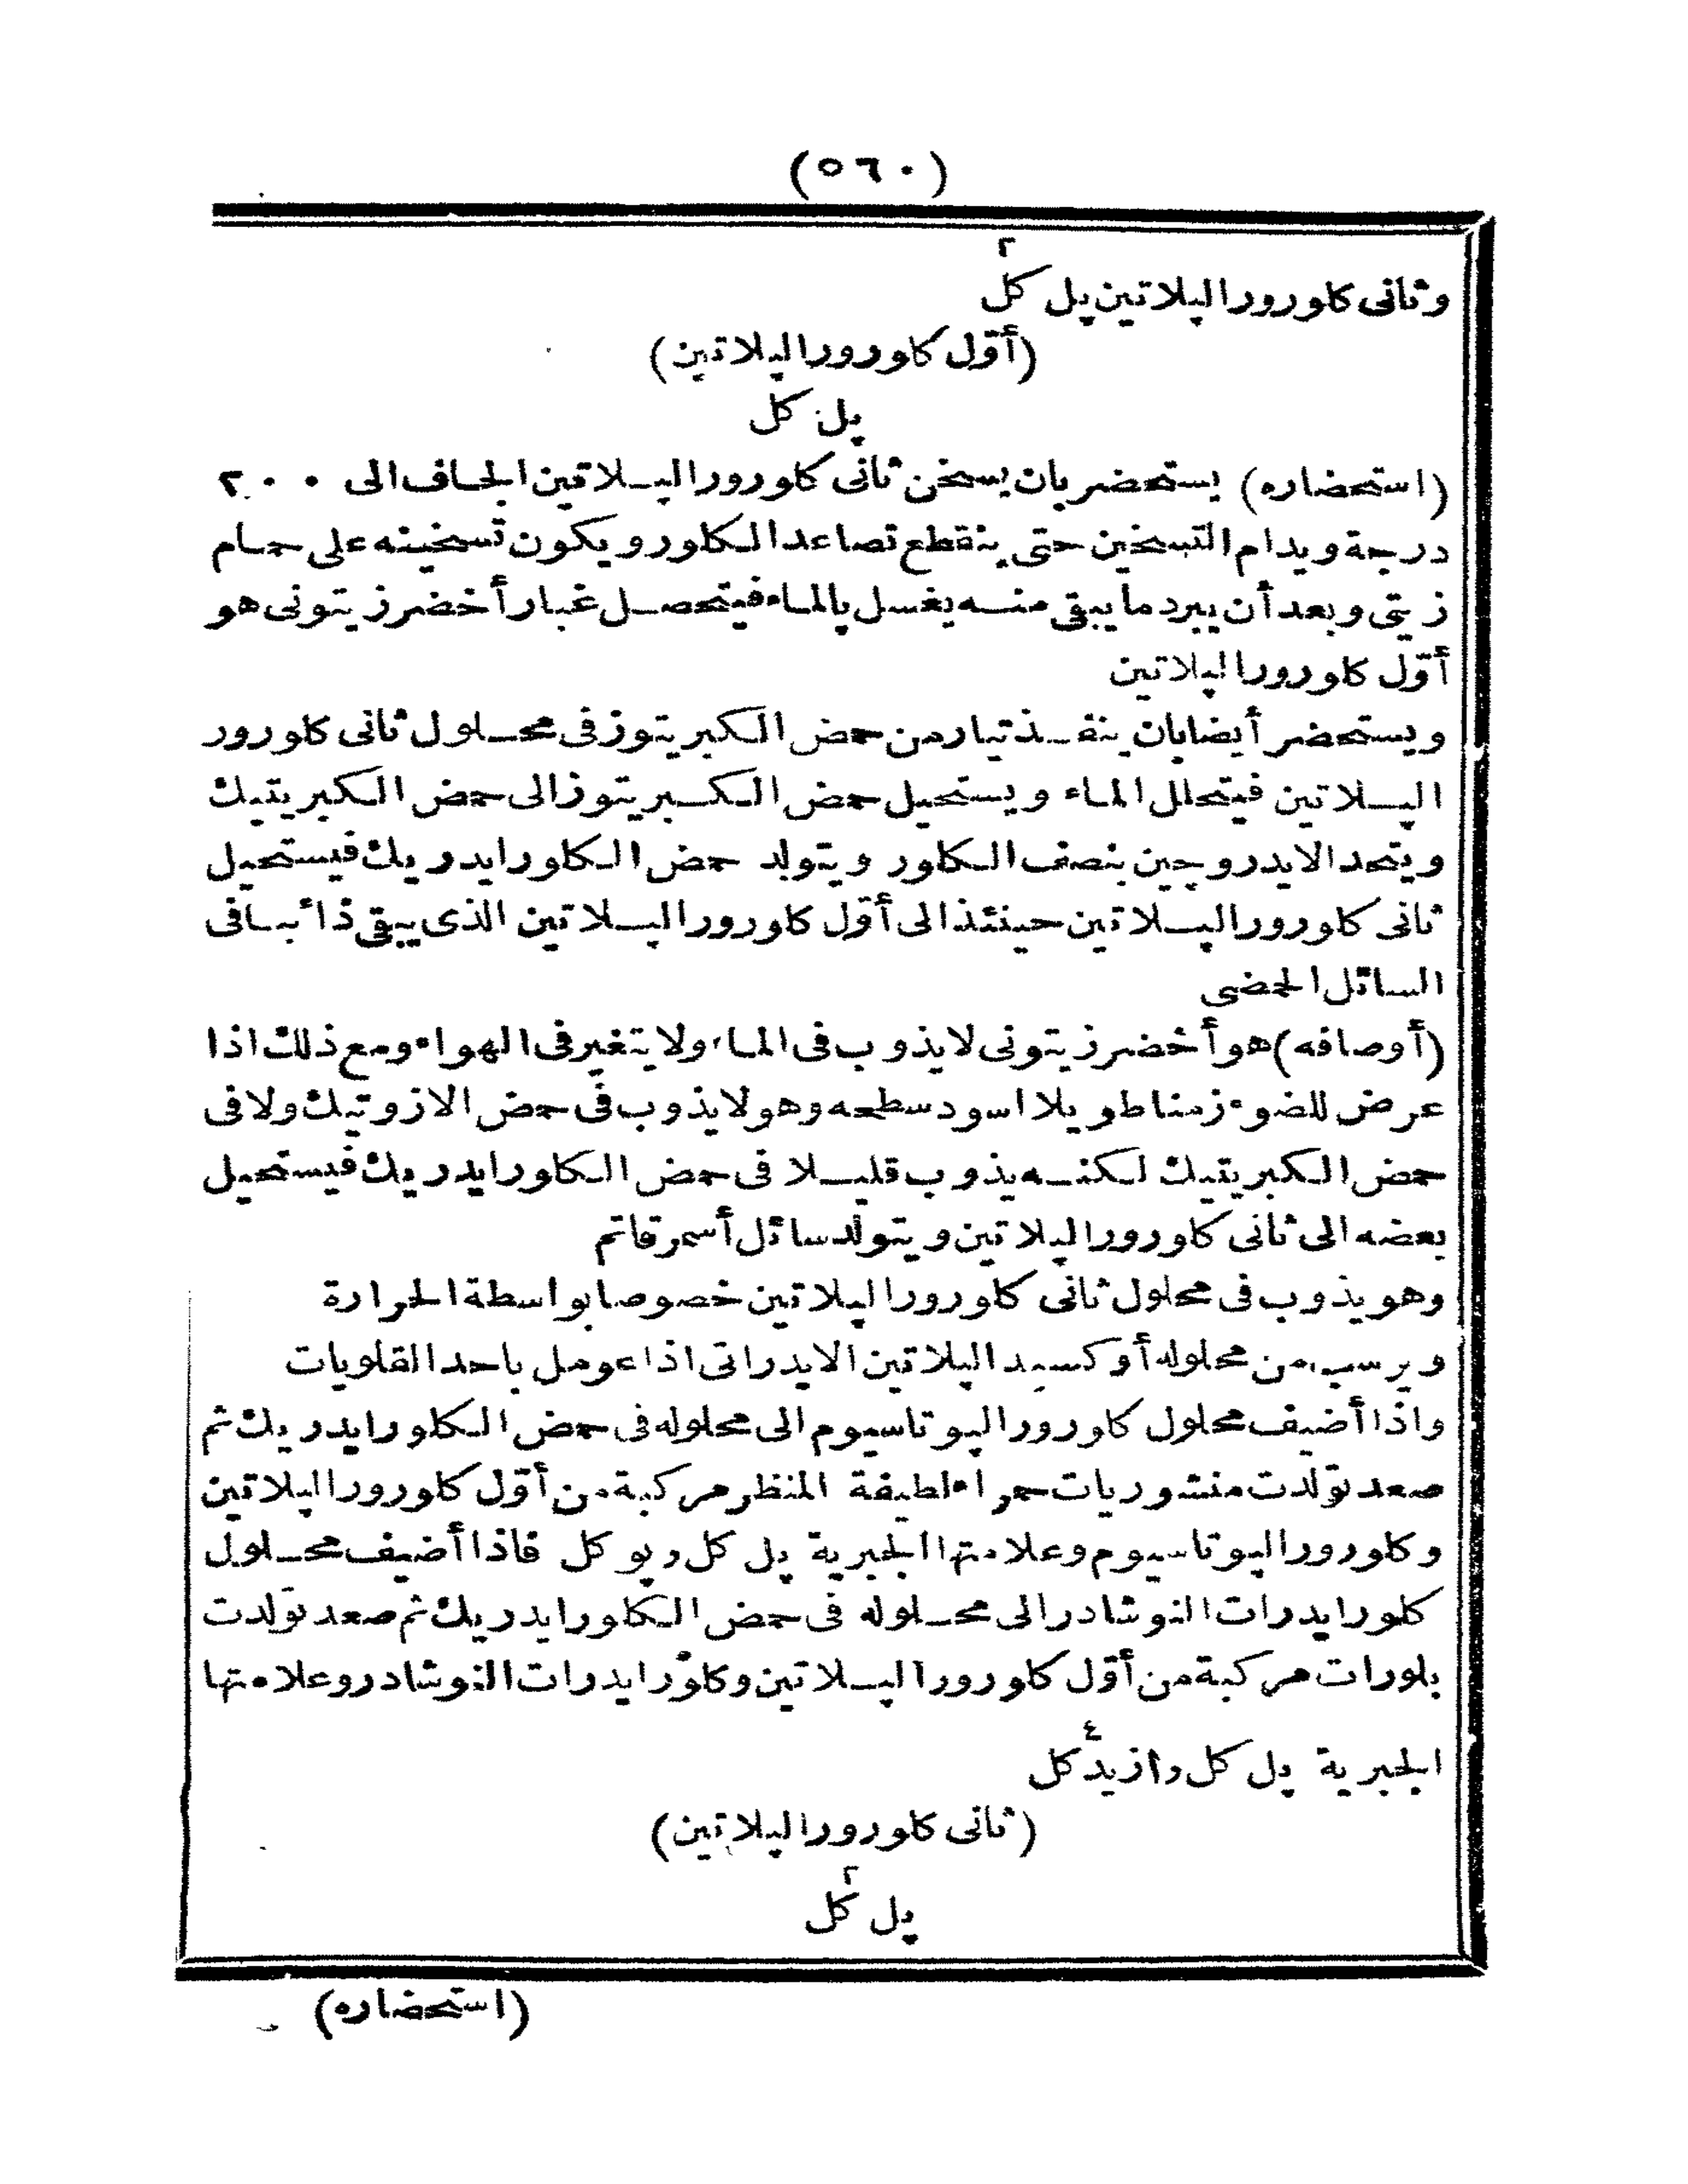 (٥٦٠)
٢
وثانى كلورور الپلاتين پل كل
(أوّل كلورور الپلاتين)
پل كل
(استحضاره) يستحضر بان يسخن ثانى كلورور الپلاتين الجاف الى ٢٠٠
درجة ويدام التسخين حتى ينقطع تصاعد الكلور ويكون تسخينه على حمام
زيتى وبعد أن يبرد ما يبقى منه يغسل بالماء فيتحصل غبار أخضر زيتونى هو
أوّل كلورور الپلاتين
ويستحضر أيضا بان ينفذ تيار من حمض الكبريتوز فى محلول ثانى كلورور
الپلاتين فيتحلل الماء ويستحيل حمض الكبريتوز الى حمض الكبريتيك
ويتحد الايدروچين بنصف الكلور ويتولد حمض الكلورايدريك فيستحيل
ثانى كلورور الپلاتين حينئذ الى أوّل كلورور الپلاتين الذى يبقى ذائبا فى
السائل الحمضى
(أوصافه) هو أخضر زيتونى لا يذوب فى الماء ولا يتغير فى الهواء ومع ذلك اذا
عرض للضوء زمنا طويلا اسود سطحه وهو لا يذوب فى حمض الازوتيك ولا فى
حمض الكبريتيك لكنه يذوب قليلا فى حمض الكلورايدريك فيستحيل
بعضه الى ثانى كلورور الپلاتين ويتولد سائل أسمر قاتم
وهو يذوب فى محلول ثانى كلورور الپلاتين خصوصا بواسطة الحرارة
ويرسب من محلوله أوكسيد الپلاتين الايدراتى اذا عومل باحد القلويات
واذا أضيف محلول كلورور الپوتاسيوم الى محلوله فى حمض الكلورايدريك ثم
صعد تولدت منشوريات حمراء لطيفة المنظر مركبة من أوّل كلورور الپلاتين
وكلورور الپوتاسيوم وعلامتها الجبرية پل كل و پو كل فاذا أضيف محلول
كلورايدرات النوشادر الى محلوله فى حمض الكلورايدريك ثم صعد تولدت
بلورات مركبة من أوّل كلورور الپلاتين وكلورايدرات النوشادر وعلامتها
٤
الجبرية پل كل و ازيد كل
(ثانى كلورور الپلاتين)
٢
پل كل
(استحضاره)